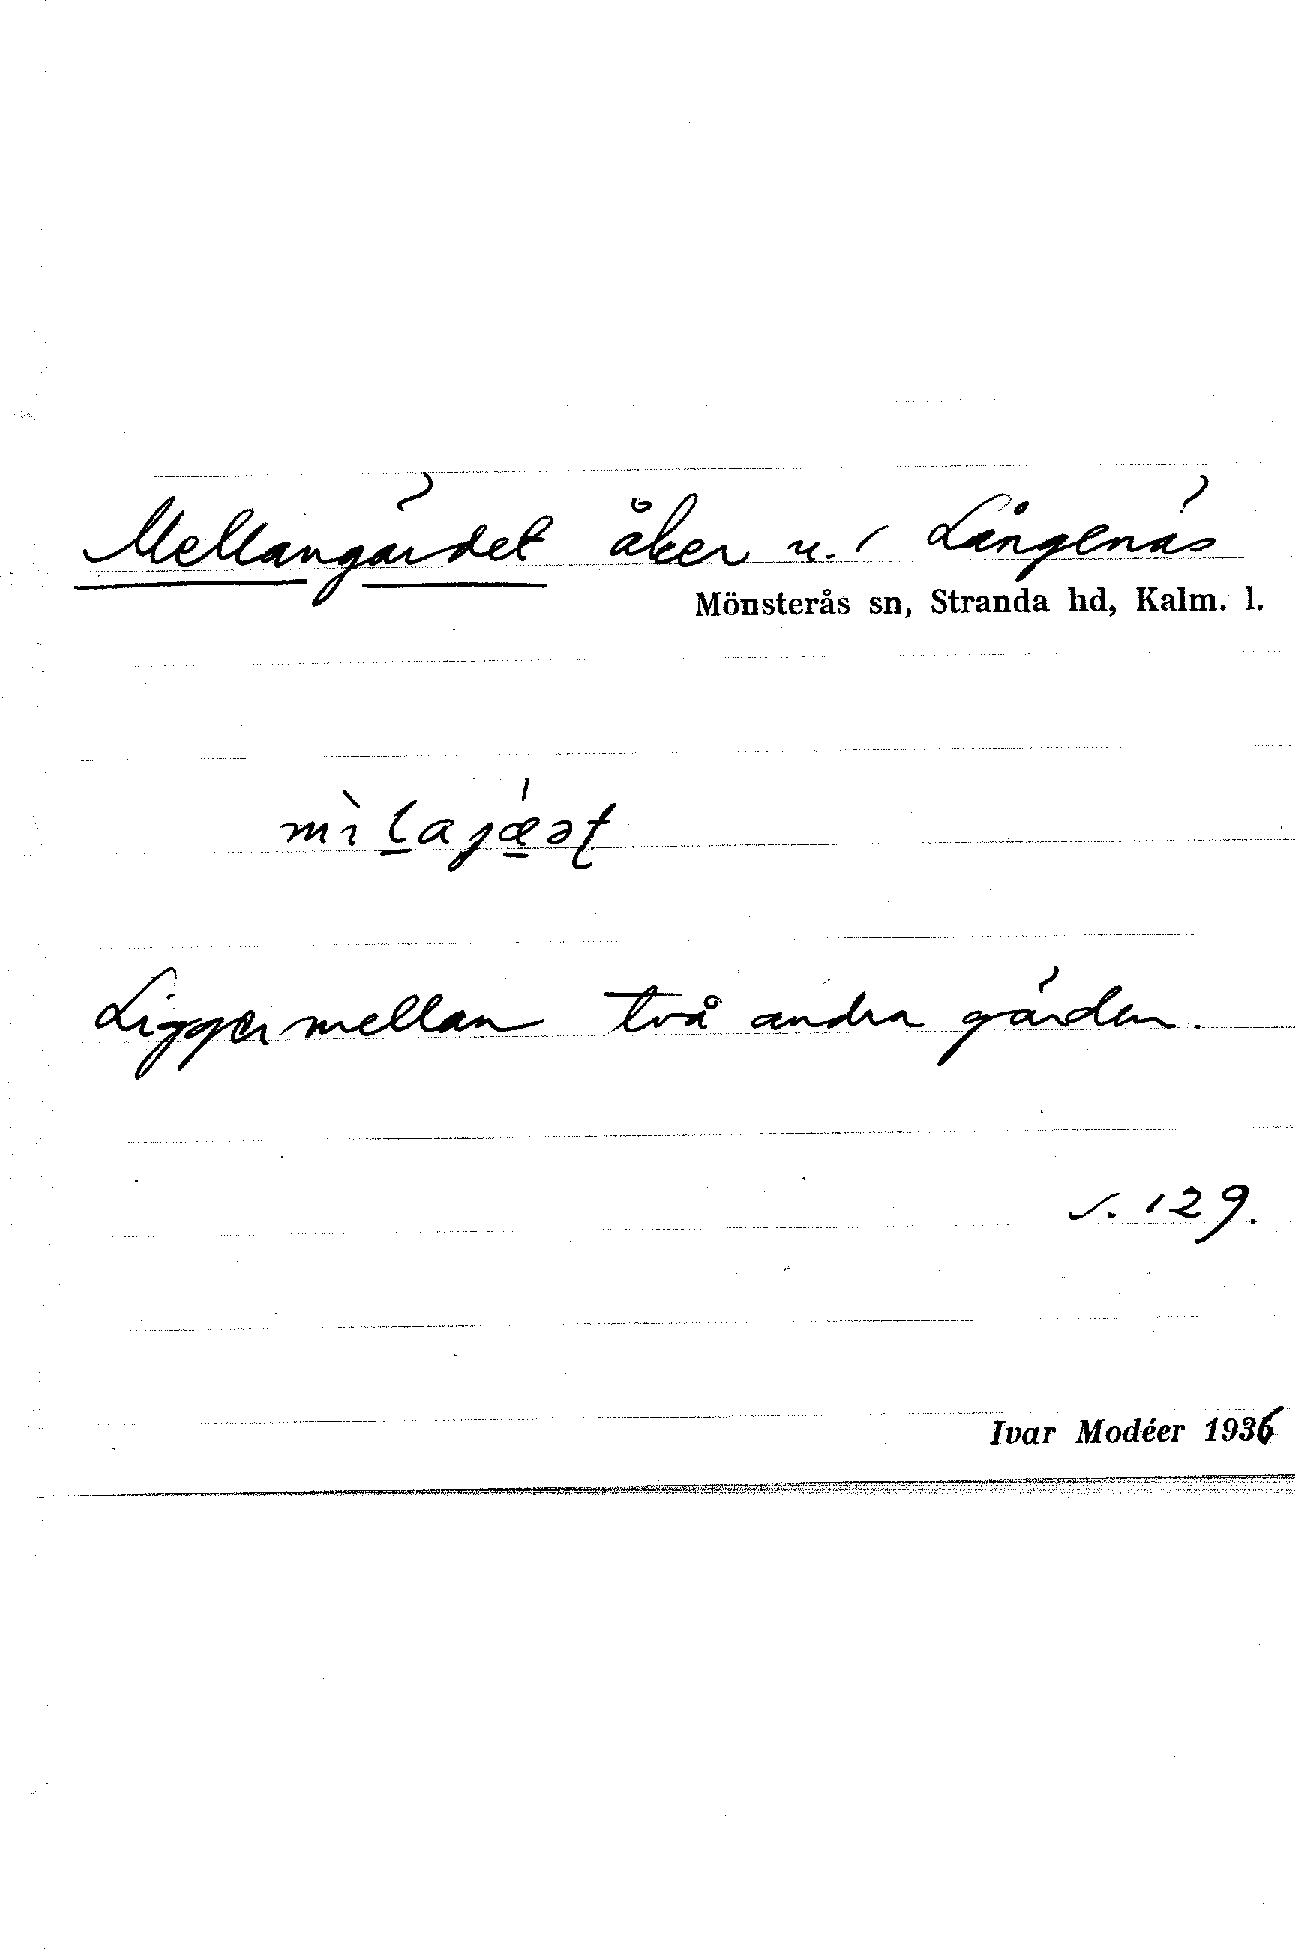 Mellangärdet åker u. / Långenäs
Mönsterås sn, Stranda hd, Kalm. l.
mìḻajǽ̱ət
Ligger mellan två andra gärden.
s. 129.
Ivar Modéer 1936